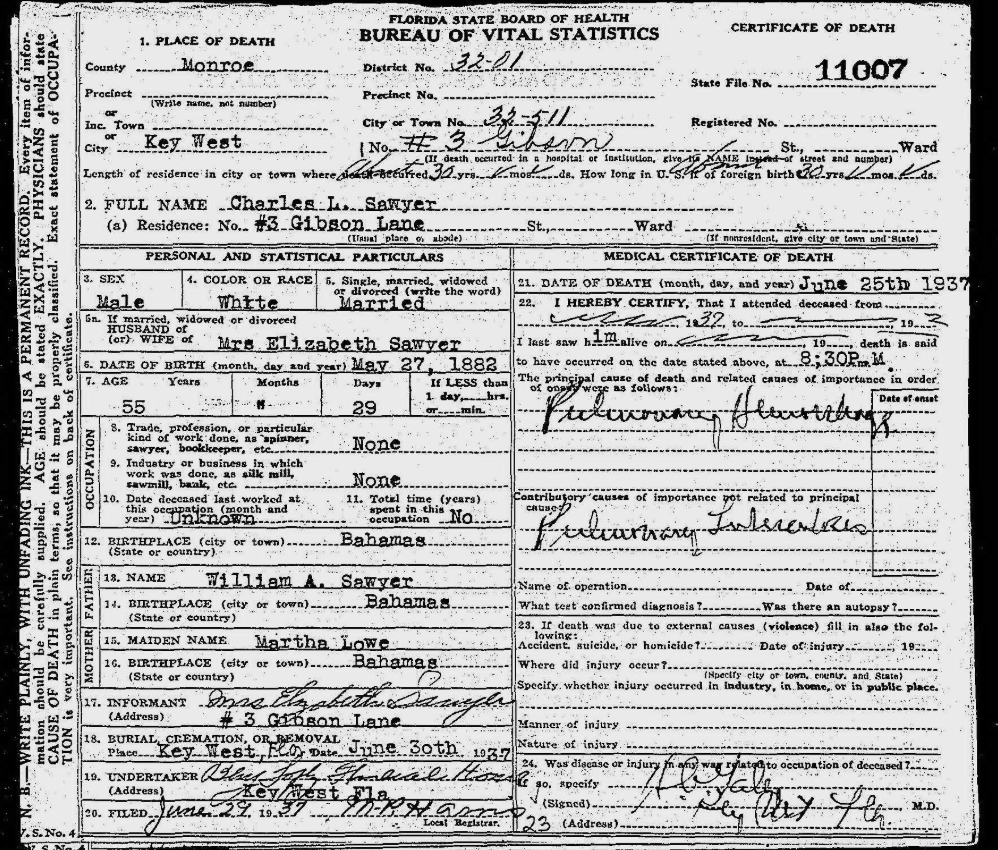 FLORIDA STATE BOARD OF HEALTH
BUREAU OF VITAL STATISTICS
CERTIFICATE OF DEATH
1. PLACE OF DEATH
County Monroe
District No. 32-01
State File No. 11007
Precinct
(Write name, not number)
Precinct No.
or
Inc. Town
City or Town No. 32-511
Registered No.
or
City Key West
No. # 3 Gibson St., Ward
(If death occurred in a hospital or institution, give its NAME instead of street and number)
Length of residence in city or town where death occurred 30 yrs. mos. ds. How long in U. S. if of foreign birth 30 yrs. mos. ds.
2. FULL NAME Charles L. Sawyer
(a) Residence: No. #3 Gibson Lane St., Ward
(Usual place of abode) (If nonresident, give city or town and State)
PERSONAL AND STATISTICAL PARTICULARS
3. SEX Male
4. COLOR OR RACE White
5. Single, married, widowed or divorced (write the word) Married
5a. If married, widowed or divorced
HUSBAND of
(or) WIFE of Mrs Elizabeth Sawyer
6. DATE OF BIRTH (month, day and year) May 27, 1882
7. AGE Years Months Days If LESS than
1 day, hrs.
55 29 or min.
OCCUPATION
8. Trade, profession, or particular
kind of work done, as spinner,
sawyer, bookkeeper, etc. None
9. Industry or business in which
work was done, as silk mill,
sawmill, bank, etc. None
10. Date deceased last worked at
this occupation (month and
year) Unknown
11. Total time (years)
spent in this
occupation No
12. BIRTHPLACE (city or town) Bahamas
(State or country)
FATHER
13. NAME William A. Sawyer
14. BIRTHPLACE (city or town) Bahamas
(State or country)
MOTHER
15. MAIDEN NAME Martha Lowe
16. BIRTHPLACE (city or town) Bahamas
(State or country)
17. INFORMANT Mrs Elizabeth Sawyer
(Address) # 3 Gibson Lane
18. BURIAL, CREMATION, OR REMOVAL
Place Key West, Fla. Date June 30th 1937
19. UNDERTAKER
(Address) Key West Fla
20. FILED June 29 1937
Local Registrar.
V. S. No. 4
MEDICAL CERTIFICATE OF DEATH
21. DATE OF DEATH (month, day, and year) June 25th 1937
22. I HEREBY CERTIFY, That I attended deceased from
1937, to 193
I last saw him alive on , 19 , death is said
to have occurred on the date stated above, at 8;30P.M.
The principal cause of death and related causes of importance in order
of onset were as follows:
Date of onset
Pulmonary Hemorrhage
Contributory causes of importance not related to principal
cause:
Pulmonary Tuberculosis
Name of operation Date of
What test confirmed diagnosis? Was there an autopsy?
23. If death was due to external causes (violence) fill in also the following:
Accident, suicide, or homicide? Date of injury 19
Where did injury occur?
(Specify city or town, county, and State)
Specify whether injury occurred in industry, in home, or in public place.
Manner of injury
Nature of injury
24. Was disease or injury in any way related to occupation of deceased?
If so, specify
(Signed) M.D.
23 (Address) Key West Fla.
N. B.—WRITE PLAINLY, WITH UNFADING INK—THIS IS A PERMANENT RECORD. Every item of information should be carefully supplied. AGE should be stated EXACTLY. PHYSICIANS should state CAUSE OF DEATH in plain terms, so that it may be properly classified. Exact statement of OCCUPATION is very important. See instructions on back of certificate.